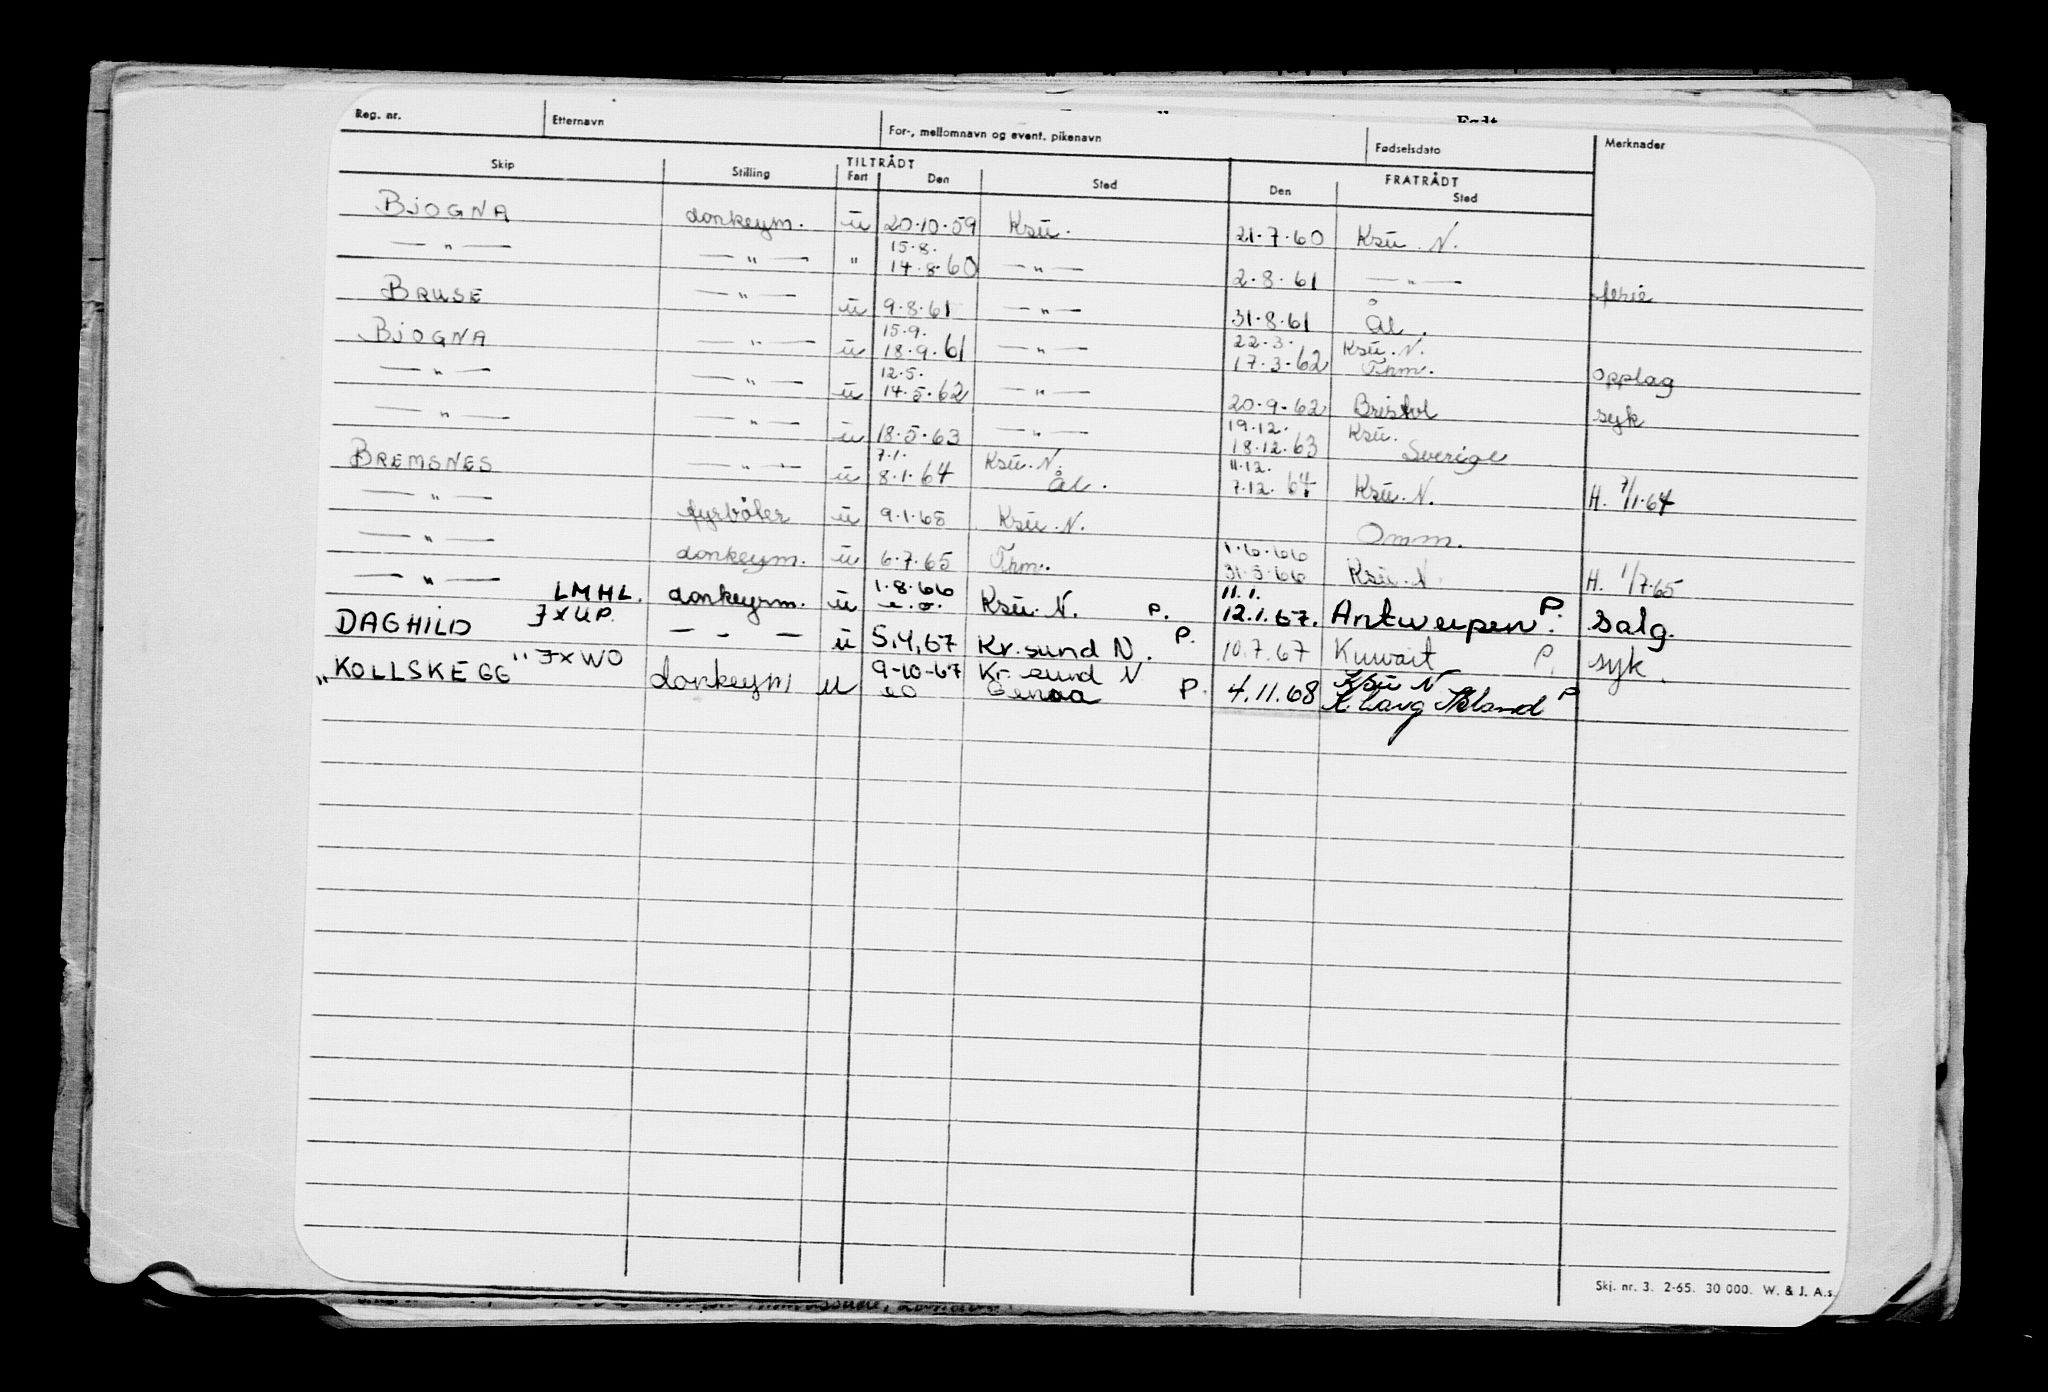 Reg. nr. Etternavn For-, mellomnavn og event. pikenavn Fødselsdato Merknader
Skip Stilling TILTRÅDT FRATRÅDT
Fart Den Sted Den Sted
BJOGNA donkeym. u 20.10.59 Ksu. 21.7.60 Ksu. N.
15.8.
— " — — " — " 14.8.60 — " — 2.8.61 — " — ferie
BRUSE — " — u 9.8.61 — " — 31.8.61 Ål.
15.9. 22.3. Ksu. N.
BJOGNA — " — u 18.9.61 — " — 17.3.62 Thm. opplag
12.5.
— " — — " — u 14.5.62 — " — 20.9.62 Bristol syk
19.12. Ksu.
— " — — " — u 18.5.63 — " — 18.12.63 Sverige
7.1. Ksu. N. 11.12.
BREMSNES — " — u 8.1.64 Ål. 7.12.64 Ksu. N. H. 7/1.64
— " — fyrbøter u 9.1.65 Ksu. N. Omm.
1.6.66
— " — donkeym. u 6.7.65 Thm. 31.5.66 Ksu. N. H. 1/7.65
1.8.66 11.1.
— " — LMHL. donkeym. u e.o. Ksu. N. P. 12.1.67. Antwerpen. P. salg.
DAGHILD JXUP. — - — u 5.4.67 Kr.sund N. P. 10.7.67 Kuwait P. syk.
9-10-67 Kr. sund N Ksu N
"KOLLSKEGG" JXWO donkeym u eo Genoa P. 4.11.68 P
Skj. nr. 3. 2-65. 30 000. W. & J. A.s.